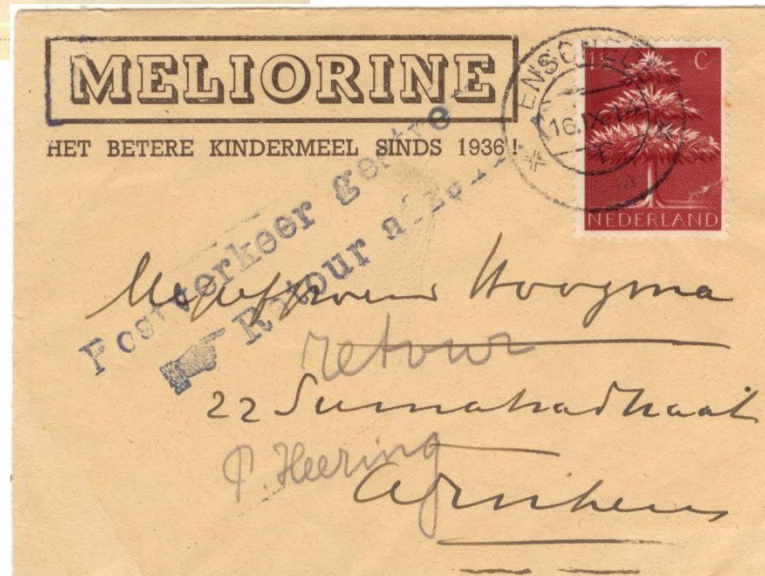 MELIORINE
HET BETERE KINDERMEEL SINDS 1936!
1½ C
NEDERLAND
16.IX.
Postverkeer
Retour
Mejuffrouw Hoogma
retour
22 Sumatrastraat
P. Heering
Arnhem